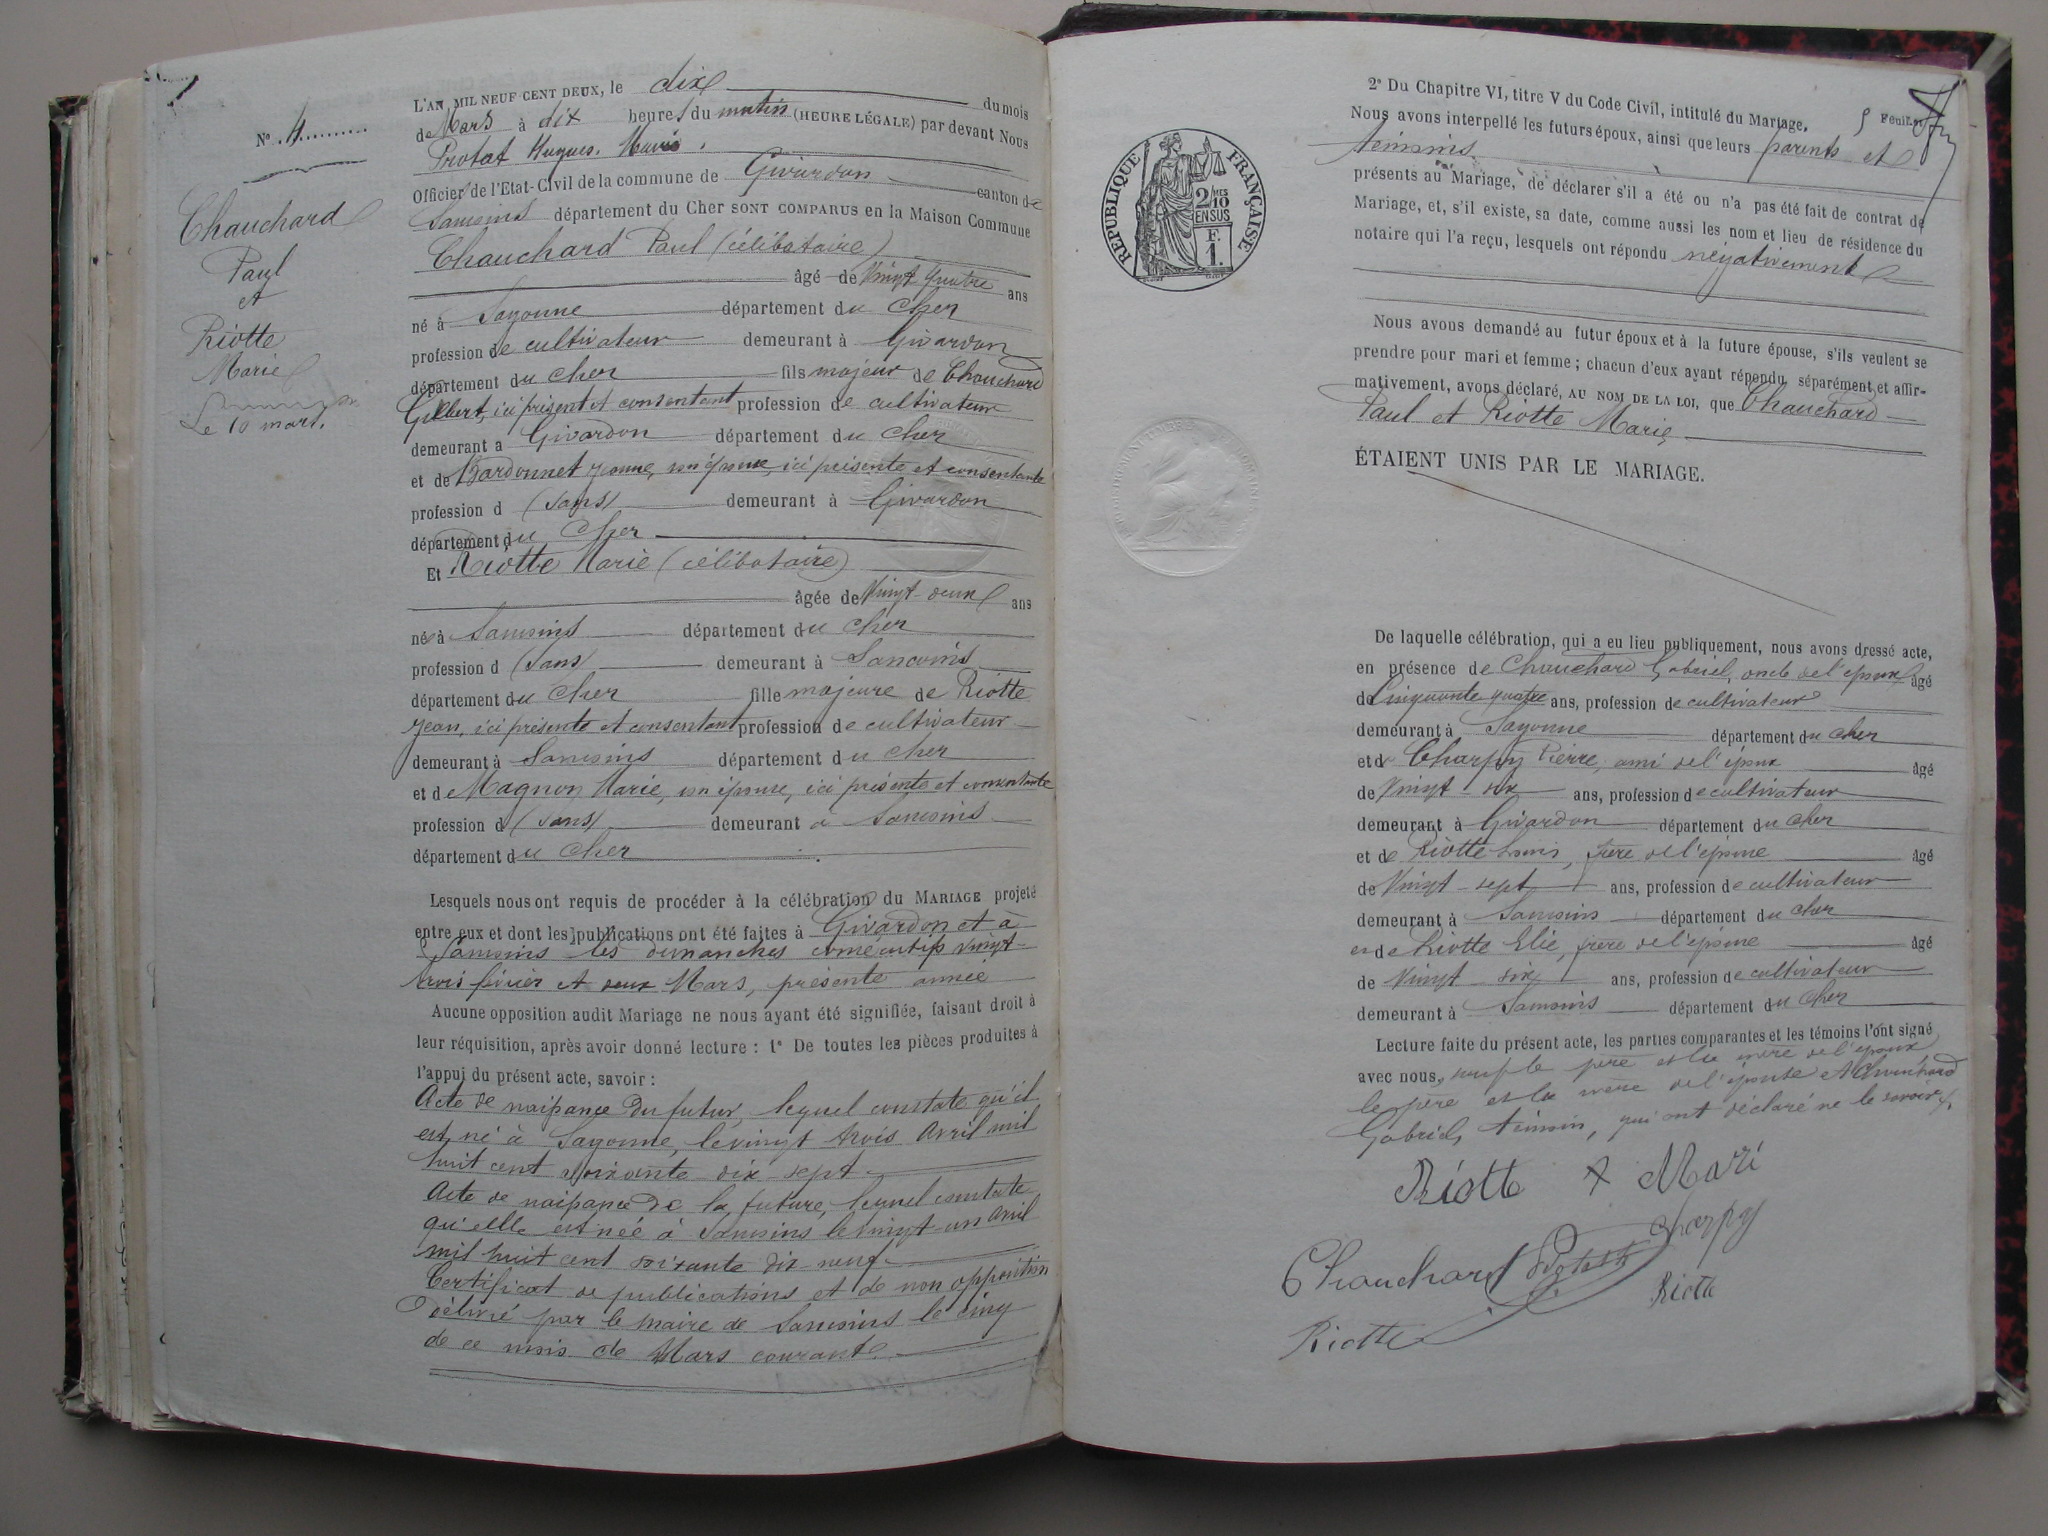 N° 4
Chauchard
Paul
et
Riotte
Marie
Le 10 mars.
L'AN MIL NEUF CENT DEUX, le dix du mois
de Mars à dix heures du matin (HEURE LÉGALE) par devant Nous
Protat Hugues, Maire.
Officier de l'Etat-Civil de la commune de Givardon canton de
Sancoins département du Cher SONT COMPARUS en la Maison Commune
Chauchard Paul (célibataire)
âgé de Vingt quatre ans
né à Sagonne département du Cher
profession de cultivateur demeurant à Givardon
département du Cher fils majeur de Chauchard
Gilbert, ici présent et consentant profession de cultivateur
demeurant a Givardon département du Cher
et de Bardonnet Jeanne, son épouse, ici présente et consentante
profession d (sans) demeurant à Givardon
département du Cher
Et Riotte Marie (célibataire)
âgée de Vingt-deux ans
née à Sancoins département du Cher
profession d (sans) demeurant à Sancoins
département du Cher fille majeure de Riotte
Jean, ici présente et consentant profession de cultivateur
demeurant à Sancoins département du Cher
et de Magnon Marie, son épouse, ici présente et consentante
profession d (sans) demeurant à Sancoins
département du Cher
Lesquels nous ont requis de procéder à la célébration du MARIAGE projeté
entre eux et dont les publications ont été faites à Givardon et à
Sancoins les dimanches consécutifs vingt-
trois février et deux Mars, présente année
Aucune opposition audit Mariage ne nous ayant été signifiée, faisant droit à
leur réquisition, après avoir donné lecture : 1° De toutes les pièces produites à
l'appui du présent acte, savoir :
Acte de naissance du futur, lequel constate qu'il
est né à Sagonne, le vingt trois Avril mil
huit cent soixante dix sept
Acte de naissance de la future, lequel constate
qu'elle est née à Sancoins le vingt-un Avril
mil huit cent soixante dix-neuf
Certificat de publications et de non opposition
délivré par le maire de Sancoins le cinq
de ce mois de Mars courant.
5 Feuillet
2° Du Chapitre VI, titre V du Code Civil, intitulé du Mariage.
Nous avons interpellé les futurs époux, ainsi que leurs parents et
témoins
présents au Mariage, de déclarer s'il a été ou n'a pas été fait de contrat de
Mariage, et, s'il existe, sa date, comme aussi les nom et lieu de résidence du
notaire qui l'a reçu, lesquels ont répondu négativement
Nous avons demandé au futur époux et à la future épouse, s'ils veulent se
prendre pour mari et femme ; chacun d'eux ayant répondu séparément et affir-
mativement, avons déclaré, AU NOM DE LA LOI, que Chauchard
Paul et Riotte Marie
ÉTAIENT UNIS PAR LE MARIAGE.
RÉPUBLIQUE FRANÇAISE
2/10 MES
EN SUS
F.
1.
De laquelle célébration, qui a eu lieu publiquement, nous avons dressé acte,
en présence de Chauchard Gabriel, oncle de l'époux âgé
de Cinquante quatre ans, profession de cultivateur
demeurant à Sagonne département du Cher
et de Charpy Pierre, ami de l'époux âgé
de Vingt-six ans, profession de cultivateur
demeurant à Givardon département du Cher
et de Riotte Louis, frère de l'épouse âgé
de Vingt-sept ans, profession de cultivateur
demeurant à Sancoins département du Cher
et de Riotte Elie, frère de l'épouse âgé
de Vingt six ans, profession de cultivateur
demeurant à Sancoins département du Cher
Lecture faite du présent acte, les parties comparantes et les témoins l'ont signé
avec nous, sauf le père et la mère de l'époux
le père et la mère de l'épouse et Chauchard
Gabriel, témoin, qui ont déclaré ne le savoir
Riotte Mari
Chauchard Protat Charpy
Riotte
Riotte